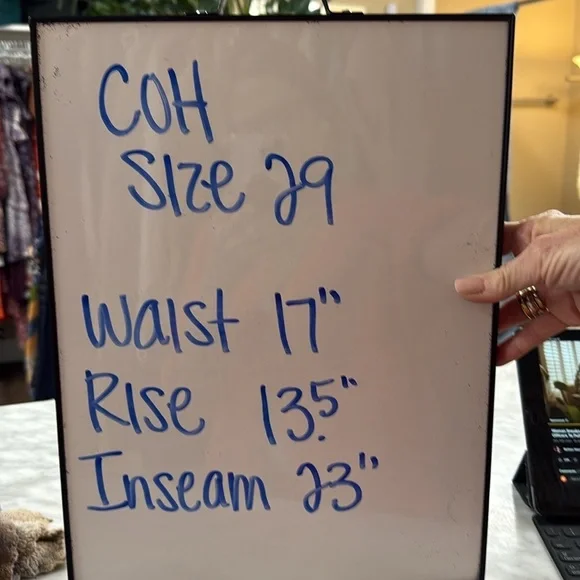 COH
Size 29
Waist 17"
Rise 13.5"
Inseam 23"